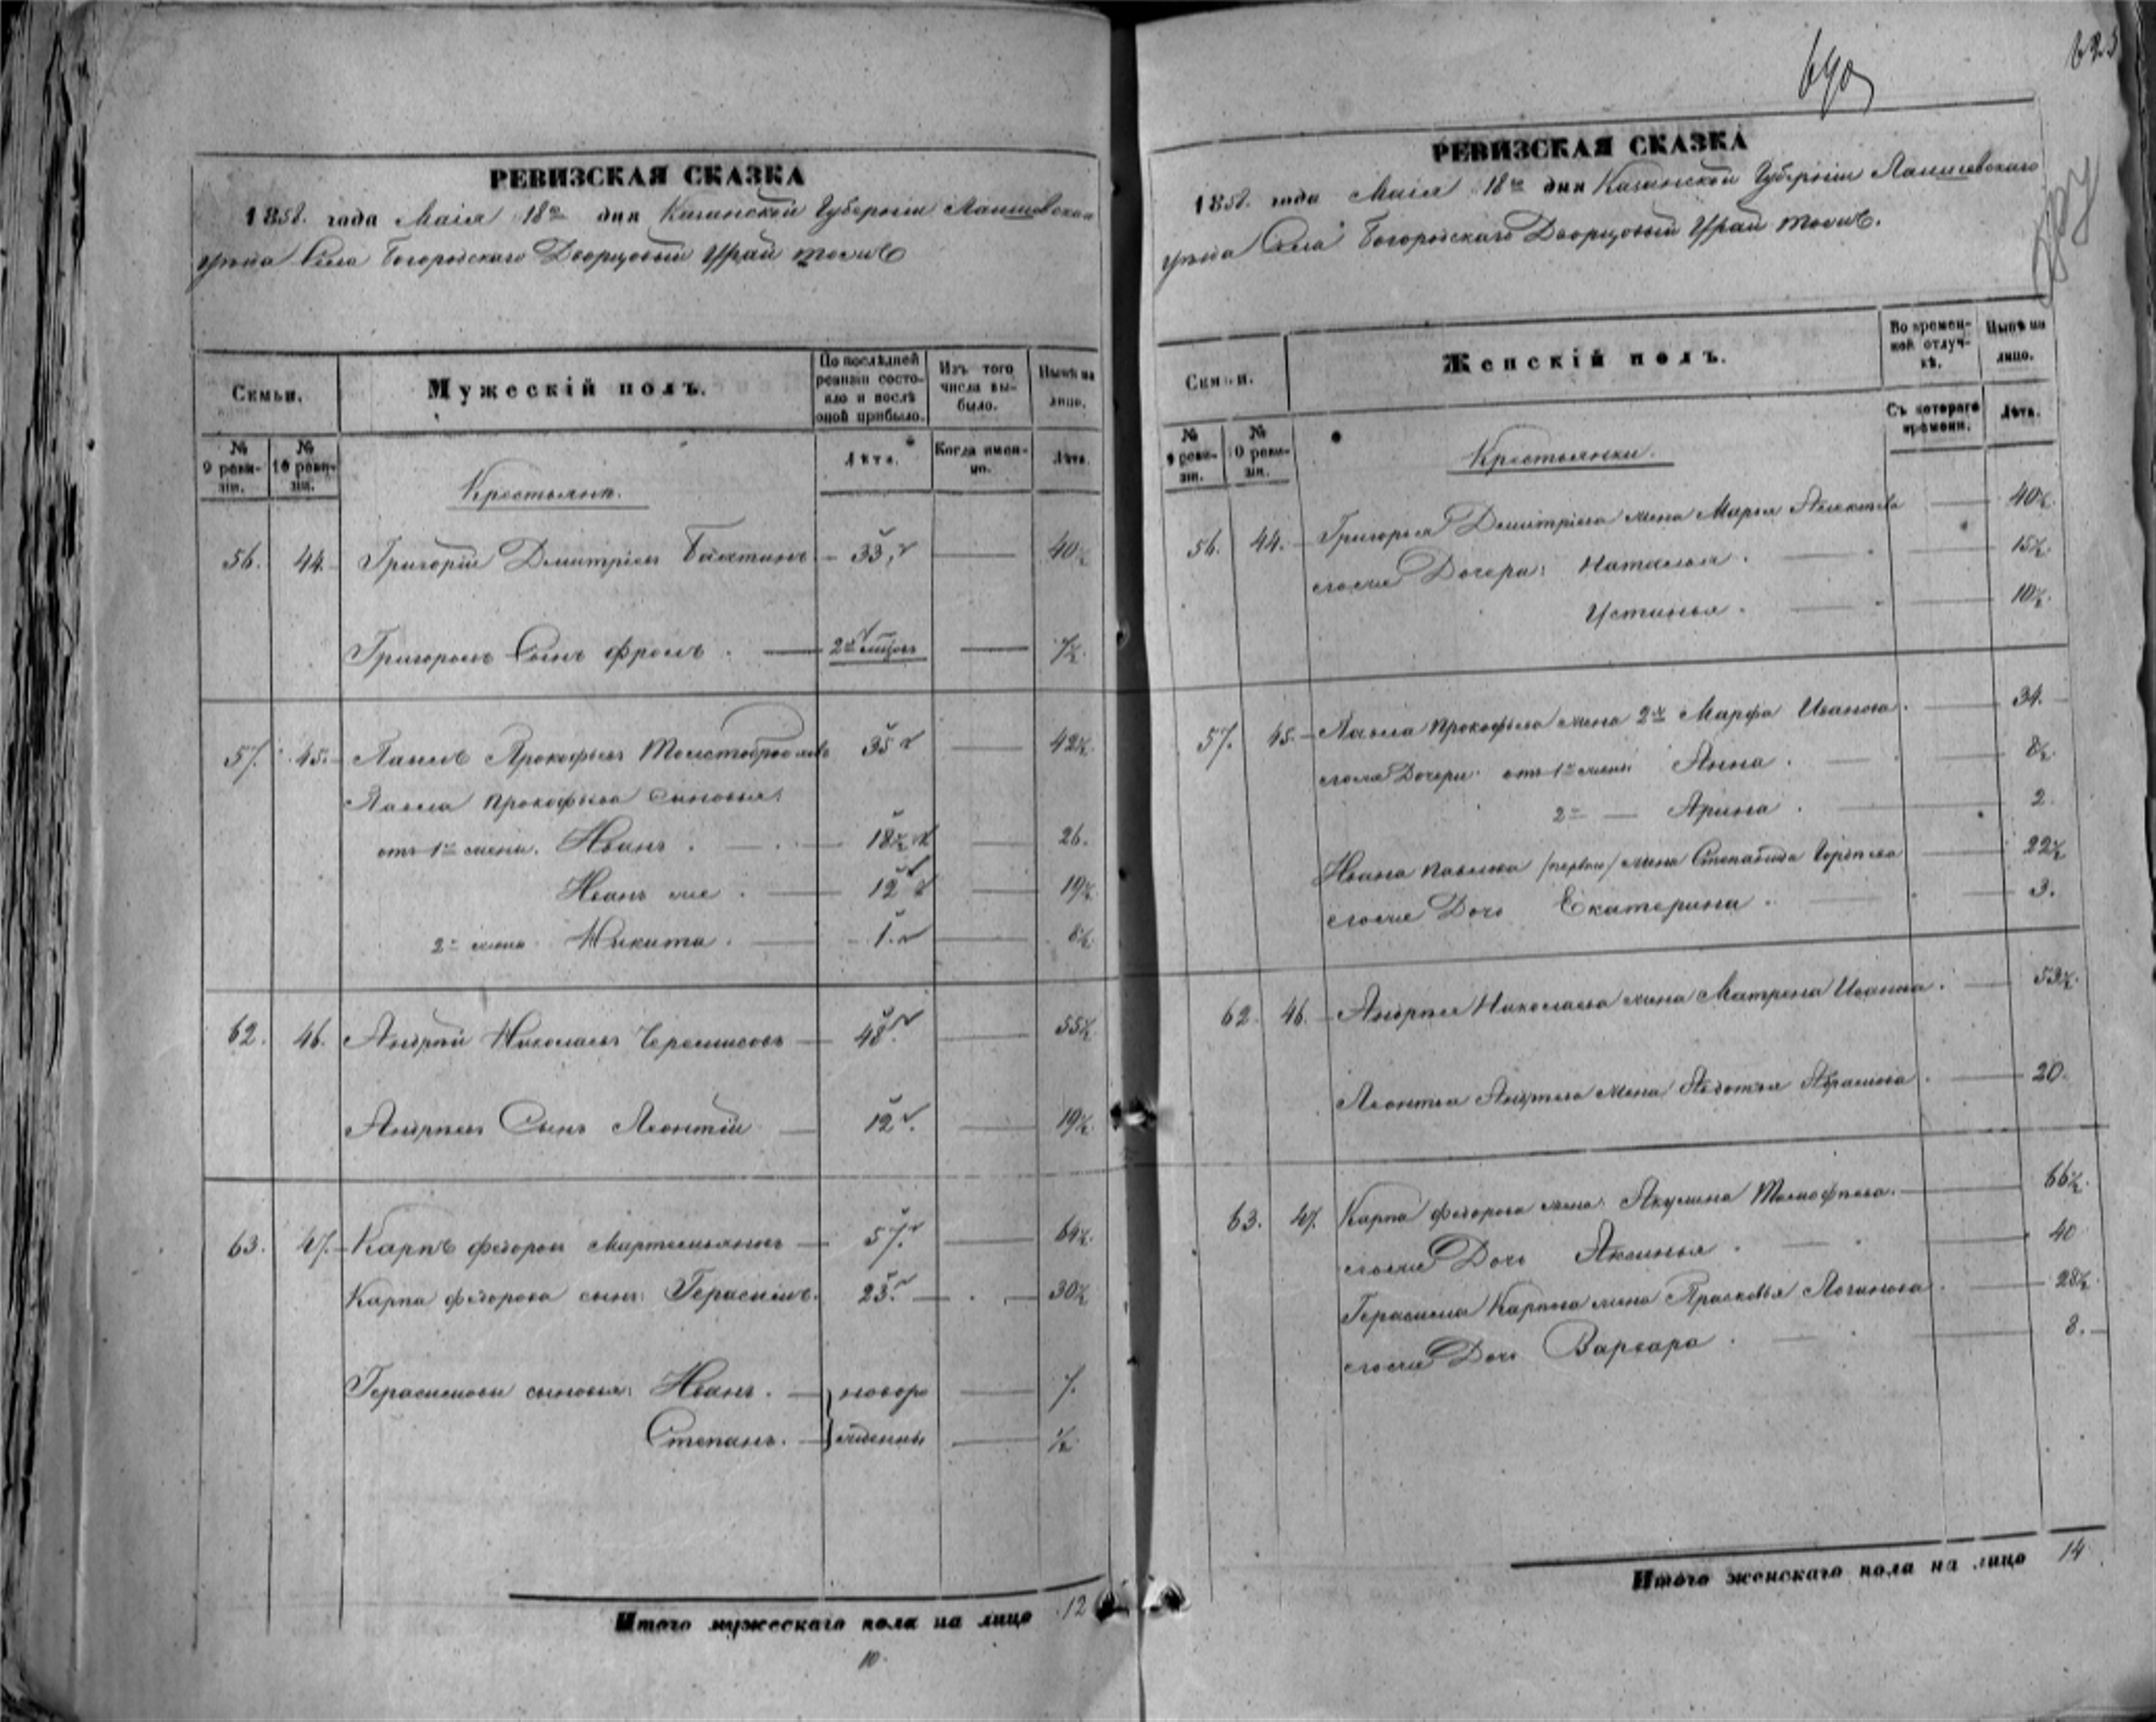 РЕВИЗСКАЯ СКАЗКА
1858. года Маія 18го дня Казанской Губерніи Лаишевскаго
уѣзда Села Богородскаго Дворцовый Урай тожъ
Семьи.
Мужескій полъ.
По послѣдней ревизіи состояло и послѣ оной прибыло.
Изъ того числа выбыло.
Нынѣ на лицо.
№ 9 ревизіи.
№ 10 ревизіи.
Лѣта.
Когда именно.
Лѣта.
Крестьяне.
56. 44. Григорій Дмитріевъ 33. 40½
Григорьевъ Сынъ Фролъ. 7½.
57. 45. Павелъ Прокофьевъ 35 42½.
Павла Прокофьева сыновья:
отъ 1й жены. Иванъ. 18½ 26.
Иванъ же. 12 19½
2й жены Никита. 1. 8½.
62. 46. Андрей Николаевъ Черемисовъ 48. 55½.
Андреевъ Сынъ Леонтій 12. 19½.
63. 47. Карпъ Федоровъ 57. 64½.
Карпа Федорова сынъ: Герасимъ. 23. 30½
Герасимовы сыновья: Иванъ. новоро 7.
Степанъ. жденны ½
Итого мужескаго пола на лицо 12
10.
623
РЕВИЗСКАЯ СКАЗКА
1858. года Маія 18го дня Казанской Губерніи Лаишевскаго
уѣзда Села Богородскаго Дворцовый Урай тожъ.
Семьи.
Женскій полъ.
Во временной отлучкѣ.
Нынѣ на лицо.
№ 9 ревизіи.
№ 10 ревизіи.
Съ котораго времени.
Лѣта.
Крестьянки.
56. 44. Григорья Дмитріева жена Марья 40½.
егоже Дочери: Наталья. 15½.
Устинья. 10½.
57. 45. Павла Прокофьева жена 2я Марфа Иванова. 34.
егоже Дочери: отъ 1й жены Анна. 8½.
2й Арина. 2.
Ивана Павлова /перваго/ жена Степанида 22½
егоже Дочь Екатерина. 3.
62. 46. Андрея Николаева жена Матрена Иванова. 53½.
Леонтья Андреева жена Авдотья Абрамова. 20.
63. 47. Карпа Федорова жена Акулина Тимофѣева. 66½.
егоже Дочь Аксинья. 40
Герасима Карпова жена Прасковья Логинова. 28½.
егоже Дочь Варвара. 8.
Итого женскаго пола на лицо 14